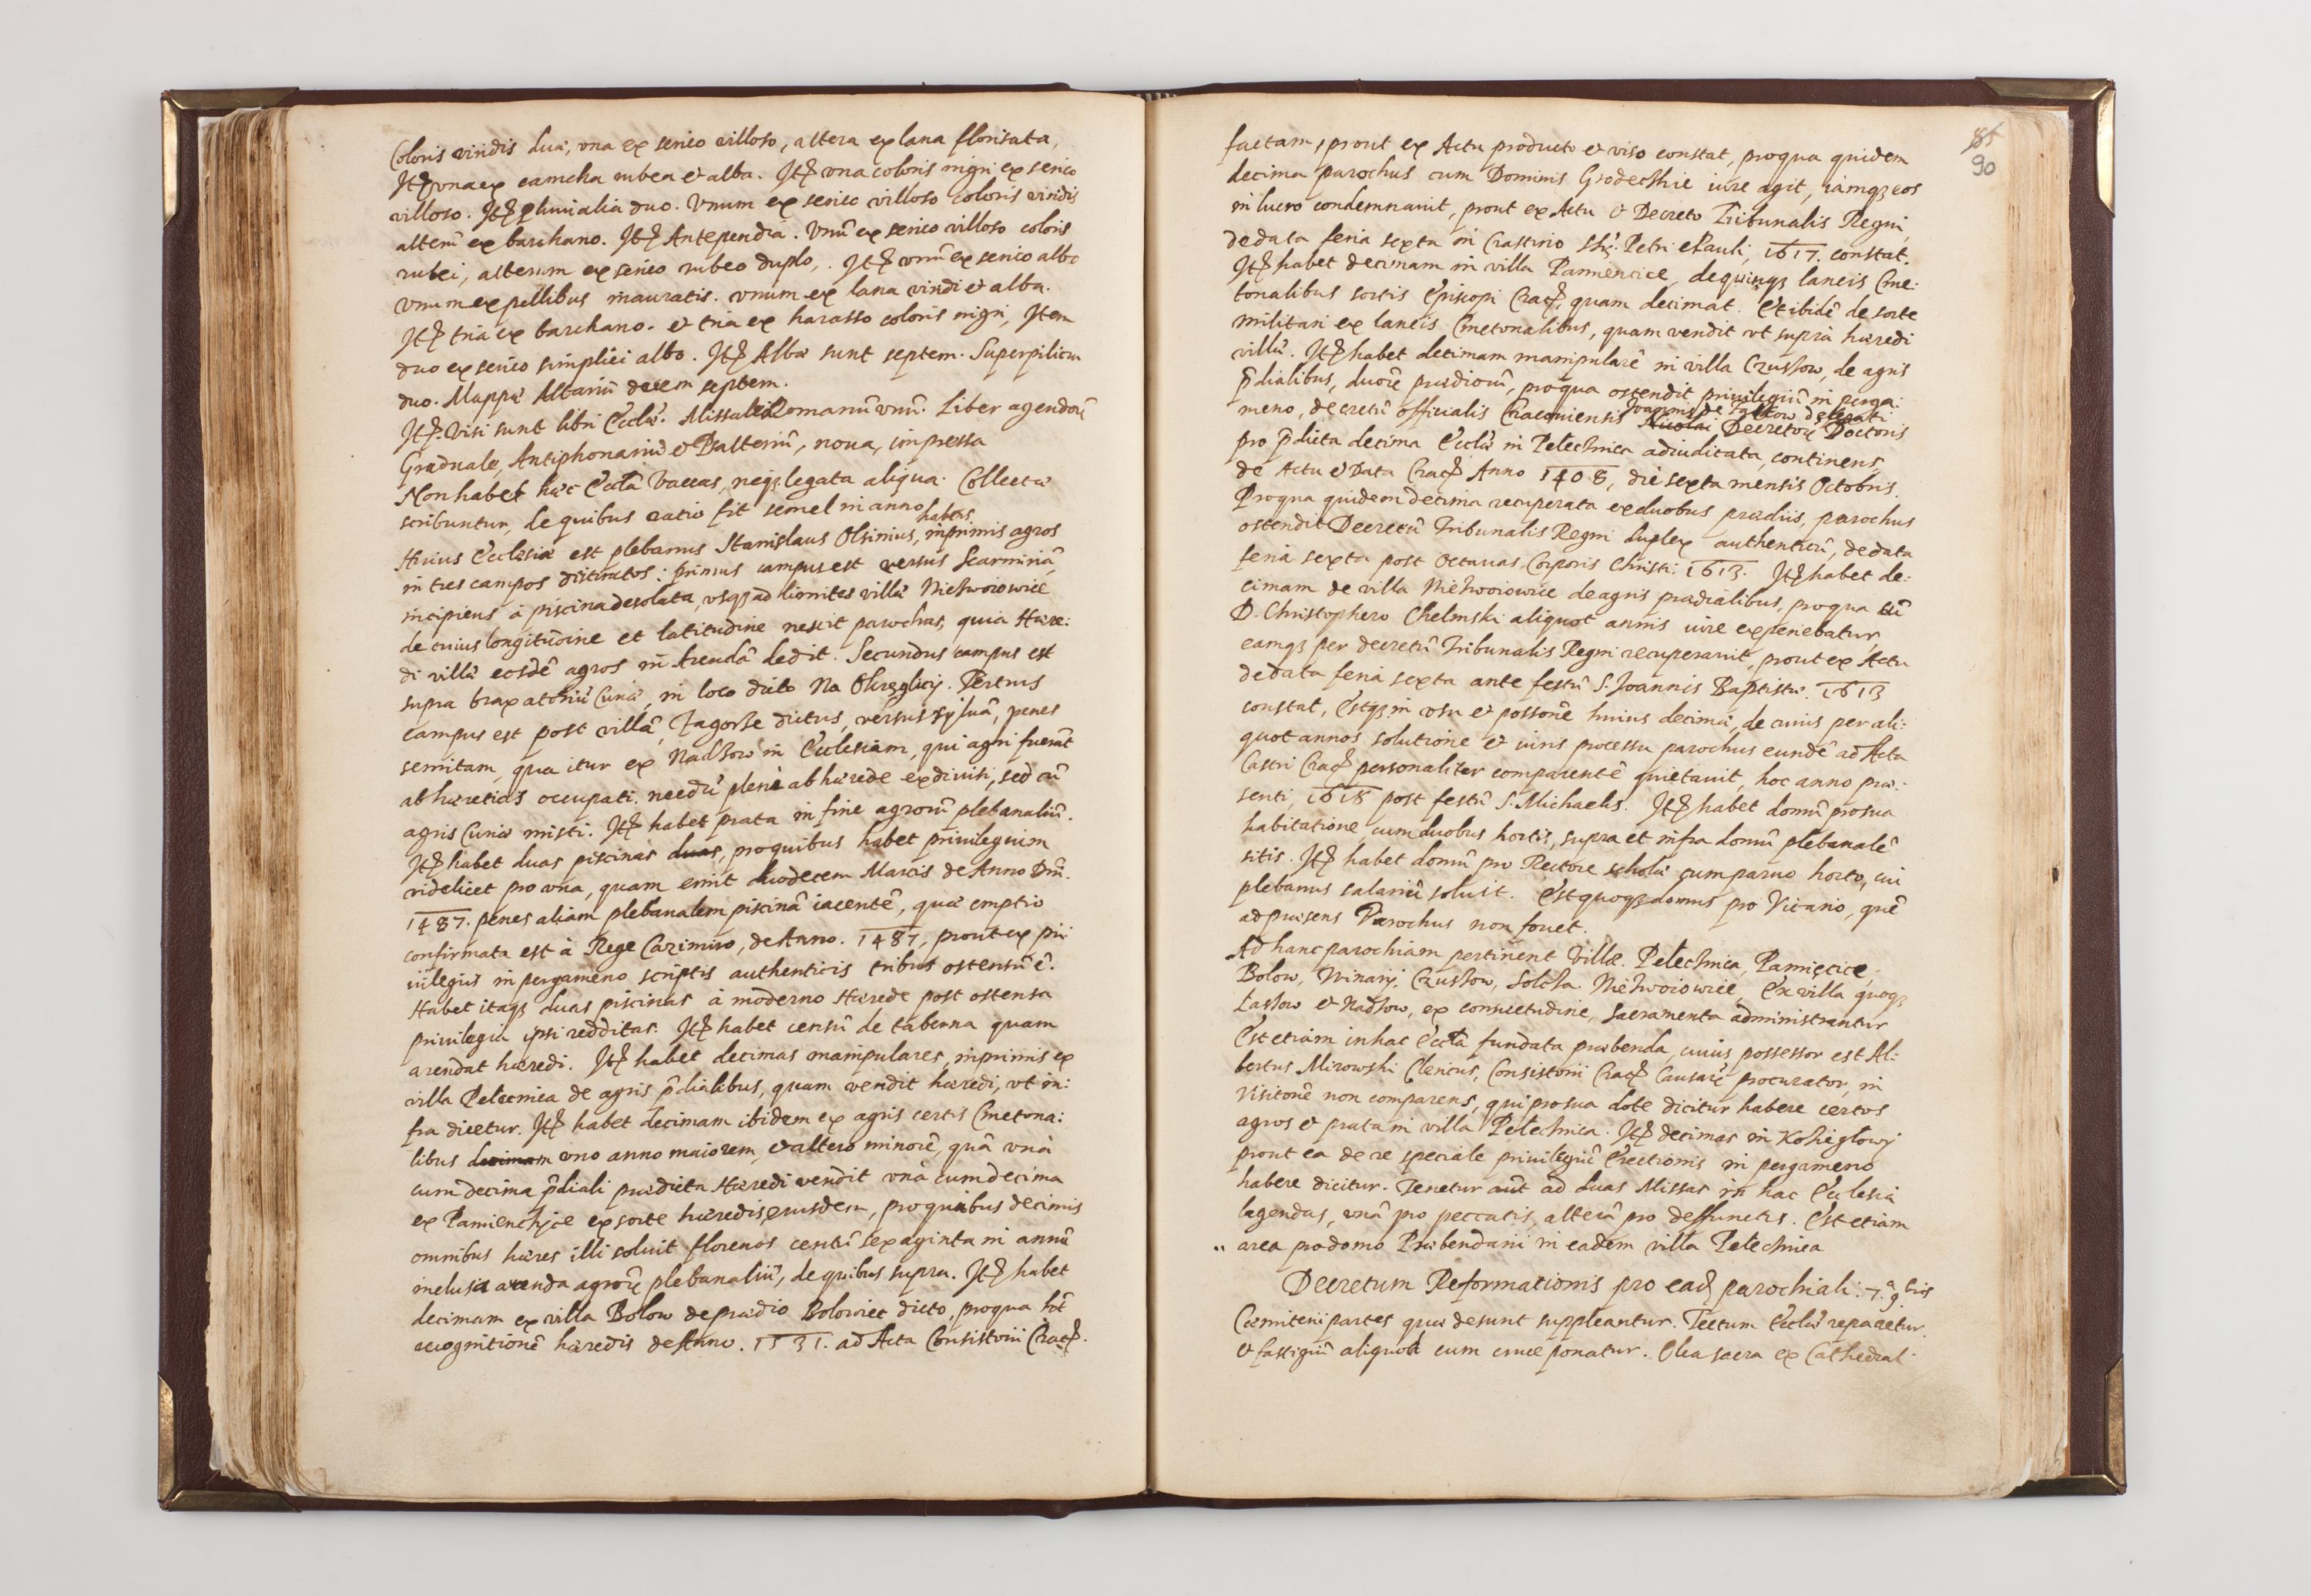 Coloris viridis duæ, vna ex serico villoso, altera ex lana florisata,
Itē vna ex camcha rubea et alba. Itē vna coloris nigri ex serico
villoso. Itē pluuialia duo. Vnum ex serico villoso coloris viridis
alterū ex barchano. Itē Antependia. Vnū ex serico villoso coloris
rubei, alterum ex serico rubeo duplo,. Itē vnū ex serico albo
Vnum ex pellibus inauratis. vnum ex lana viridi et alba.
Itē tria ex barchano. et tria ex harasso coloris nigri, Item
duo ex serico simplici albo. Itē Albæ sunt septem. Superpilicia
duo. Mappæ Altariū decem septem.
Itē. Visi sunt libri Eccl̄æ. Missale Romanū vnū. Liber agendorū
Graduale, Antiphonariū et Psalteriū, noua, impressa
Non habet hæc Eccl̄a Vaccas, neqз legata aliqua. Collectæ
scribuntur, de quibus ratio fit semel in anno
Huius Ecclesiæ est plebanus Stanislaus Olsinius, habens inprimis agros
in tres campos distinctos: primus campus est versus Scarminiā
incipiens à piscina desolata, vsqз ad limites villæ Nieżwoiowice
de cuius longitudine et latitudine nescit parochus, quia Hære:
di villæ eosdē agros in Arendā dedit. Secundus campus est
supra braxatoriū Curiæ, in loco dicto Na Okręglicy. Tertius
campus est post villā, Zagorze dictus, versus syluā, penes
semitam, qua itur ex Nadzow in Ecclesiam, qui agri fuerāt
ab hæreticis occupati. necdū plenè ab hærede exdiuisi, sed cū
agris Curiæ misti. Itē habet prata in fine agrorū plebanaliū.
Itē habet duas piscinas duas, pro quibus habet priuilegium
videlicet pro vna, quam emit duodecem Marcis de Anno Dn̄i.
1487. penes aliam plebanalem piscinā iacentē, quæ emptio
confirmata est à Rege Cazimiro, de Anno. 1487, prout ex pri
uilegiis in pergameno scriptis authenticis tribus ostensū ē.
Habet itaqз duas piscinas à moderno Hærede post ostensa
priuilegia ipsi redditas. Itē habet censū de taberna quam
arendat hæredi. Itē habet decimas manipulares, inprimis ex
villa Pelecznica de agris p̄dialibus, quam vendit hæredi, vt in:
fra dicetur. Itē habet decimam ibidem ex agris certis Cmetona:
libus decimam vno anno maiorem, et altero minorē, quā vnà
cum decima p̄diali prædicta Hæredi vendit vnà cum decima
ex Pamienchyce ex sorte hæredis eiusdem, pro quibus decimis
omnibus hæres illi soluit florenos centū sexaginta in annū
inclusa arenda agrorū plebanaliū, de quibus supra. Itē habet
decimam ex villa Bolow de prædio Bolowiec dicto, pro qua h̄t
recognitionē hæredis de Anno. 1531. ad Acta Consistorii Crac̄.
85
90
factam, prout ex Actu producto et viso constat, pro qua quidem
decima parochus cum Dominis Grodeckie iure agit, iamqз eos
in lucro condemnauit, prout ex Actu et Decreto Tribunalis Regni
de data feria sexta in Crastino SS. Petri et Pauli, 1617. constat.
Itē habet decimam in villa Pamiencice, de quinqз laneis Cme:
tonalibus sortis Episcopi Crac̄, quam decimat. Et ibidē de sorte
militari ex laneis Cmetonalibus, quam vendit vt supra hæredi
villæ. Itē habet decimam manipularē in villa Czussow, de agris
p̄dialibus, duorū prædiorū, pro qua ostendit priuilegiū in perga:
meno, decretū officialis Cracouiensis Nicolai Decretorū Doctoris
pro p̄dicta decima Eccl̄æ in Pelecznica adiudicata, continens,
de Actu et Data Crac̄ Anno 1408, die sexta mensis Octobris.
Pro qua quidem decima recuperata ex duobus prædiis, parochus
ostendit Decretū Tribunalis Regni duplex authenticū, de data
feria sexta post Octauas Corporis Christi. 1613. Itē habet de:
cimam de villa Nieżwoiowice de agris prædialibus, pro qua cū
D. Christophero Chelmski aliquot annis iure experiebatur,
eamqз per decretū Tribunalis Regni recuperauit, prout ex Actu
de data feria sexta ante festū S. Joannis Baptistæ. 1613
constat, Estqз in vsu et possonē huius decimæ, de cuius per ali:
quot annos solutione et iuris processu parochus eundē ad Acta
Castri Crac̄ personaliter comparentē quietauit, hoc anno præ:
senti, 1618 post festū S. Michaelis. Itē habet domū pro sua
habitatione, cum duobus hortis, supra et infra domū plebanalē
sitis. Itē habet domū pro Rectore scholæ cum paruo horto, cui
plebanus salariū soluit. Est quoqз domus pro Vicario, quē
ad præsens Parochus non fouet.
Ad hanc parochiam pertinent Villæ. Pelecznica, Pamięcice,
Bolow, Winary, Czussow, Solcza. Nieżwoiowice, Ex villa quoqз
Łaskow et Nadzow, ex consuetudine, Sacramenta administrantur
Est etiam in hac Eccl̄a fundata præbenda, cuius possessor est Al:
bertus Mirowski Clericus, Consistorii Crac̄ Causarū procurator, in
Visitonē non comparens, qui pro sua dote dicitur habere certos
agros et prata in villa Pelecznica. Itē decimas in Kozieglowy
prout ea de re speciale priuilegiū Erectionis in pergameno
habere dicitur. Tenetur aūt ad duas Missas in hac Ecclesia
legendas, vnā pro peccatis, alterā pro deffunctis. Est etiam
area pro domo Præbendarii in eadem villa Pelecznica
Decretum Reformationis pro ead̄ parochiali: 7.a 9.bris
Cæmiterii partes quæ desunt suppleantur. Tectum Eccl̄æ reparetur
et fastigiū aliquod cum cruce ponatur. Olea sacra ex Cathedrali